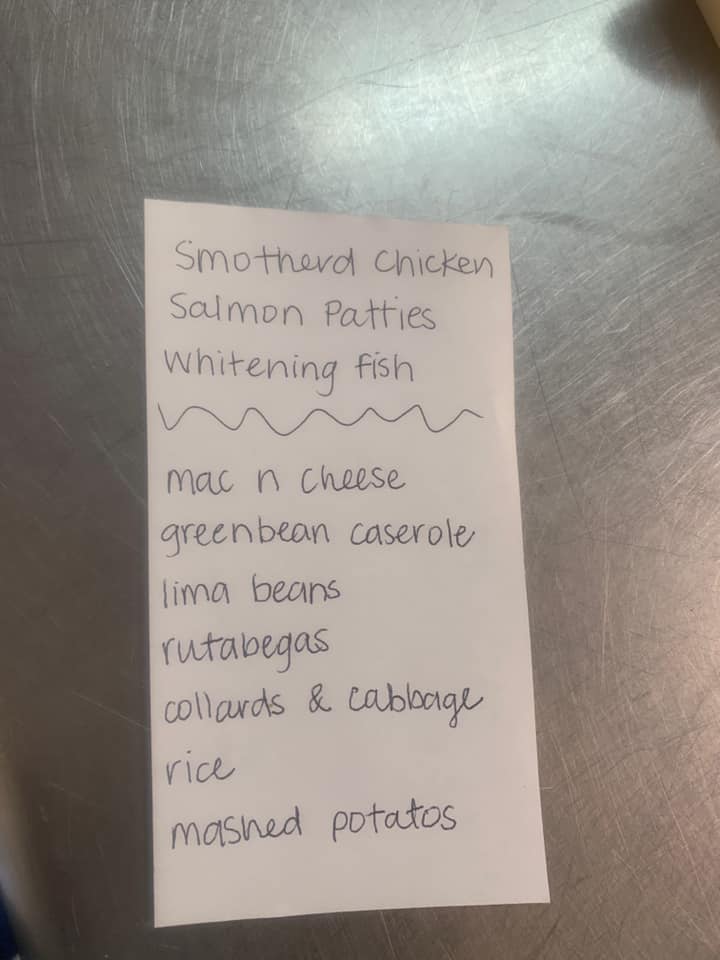 Smotherd Chicken
Salmon Patties
Whitening fish
mac n cheese
greenbean caserole
lima beans
rutabegas
collards & cabbage
rice
mashed potatos